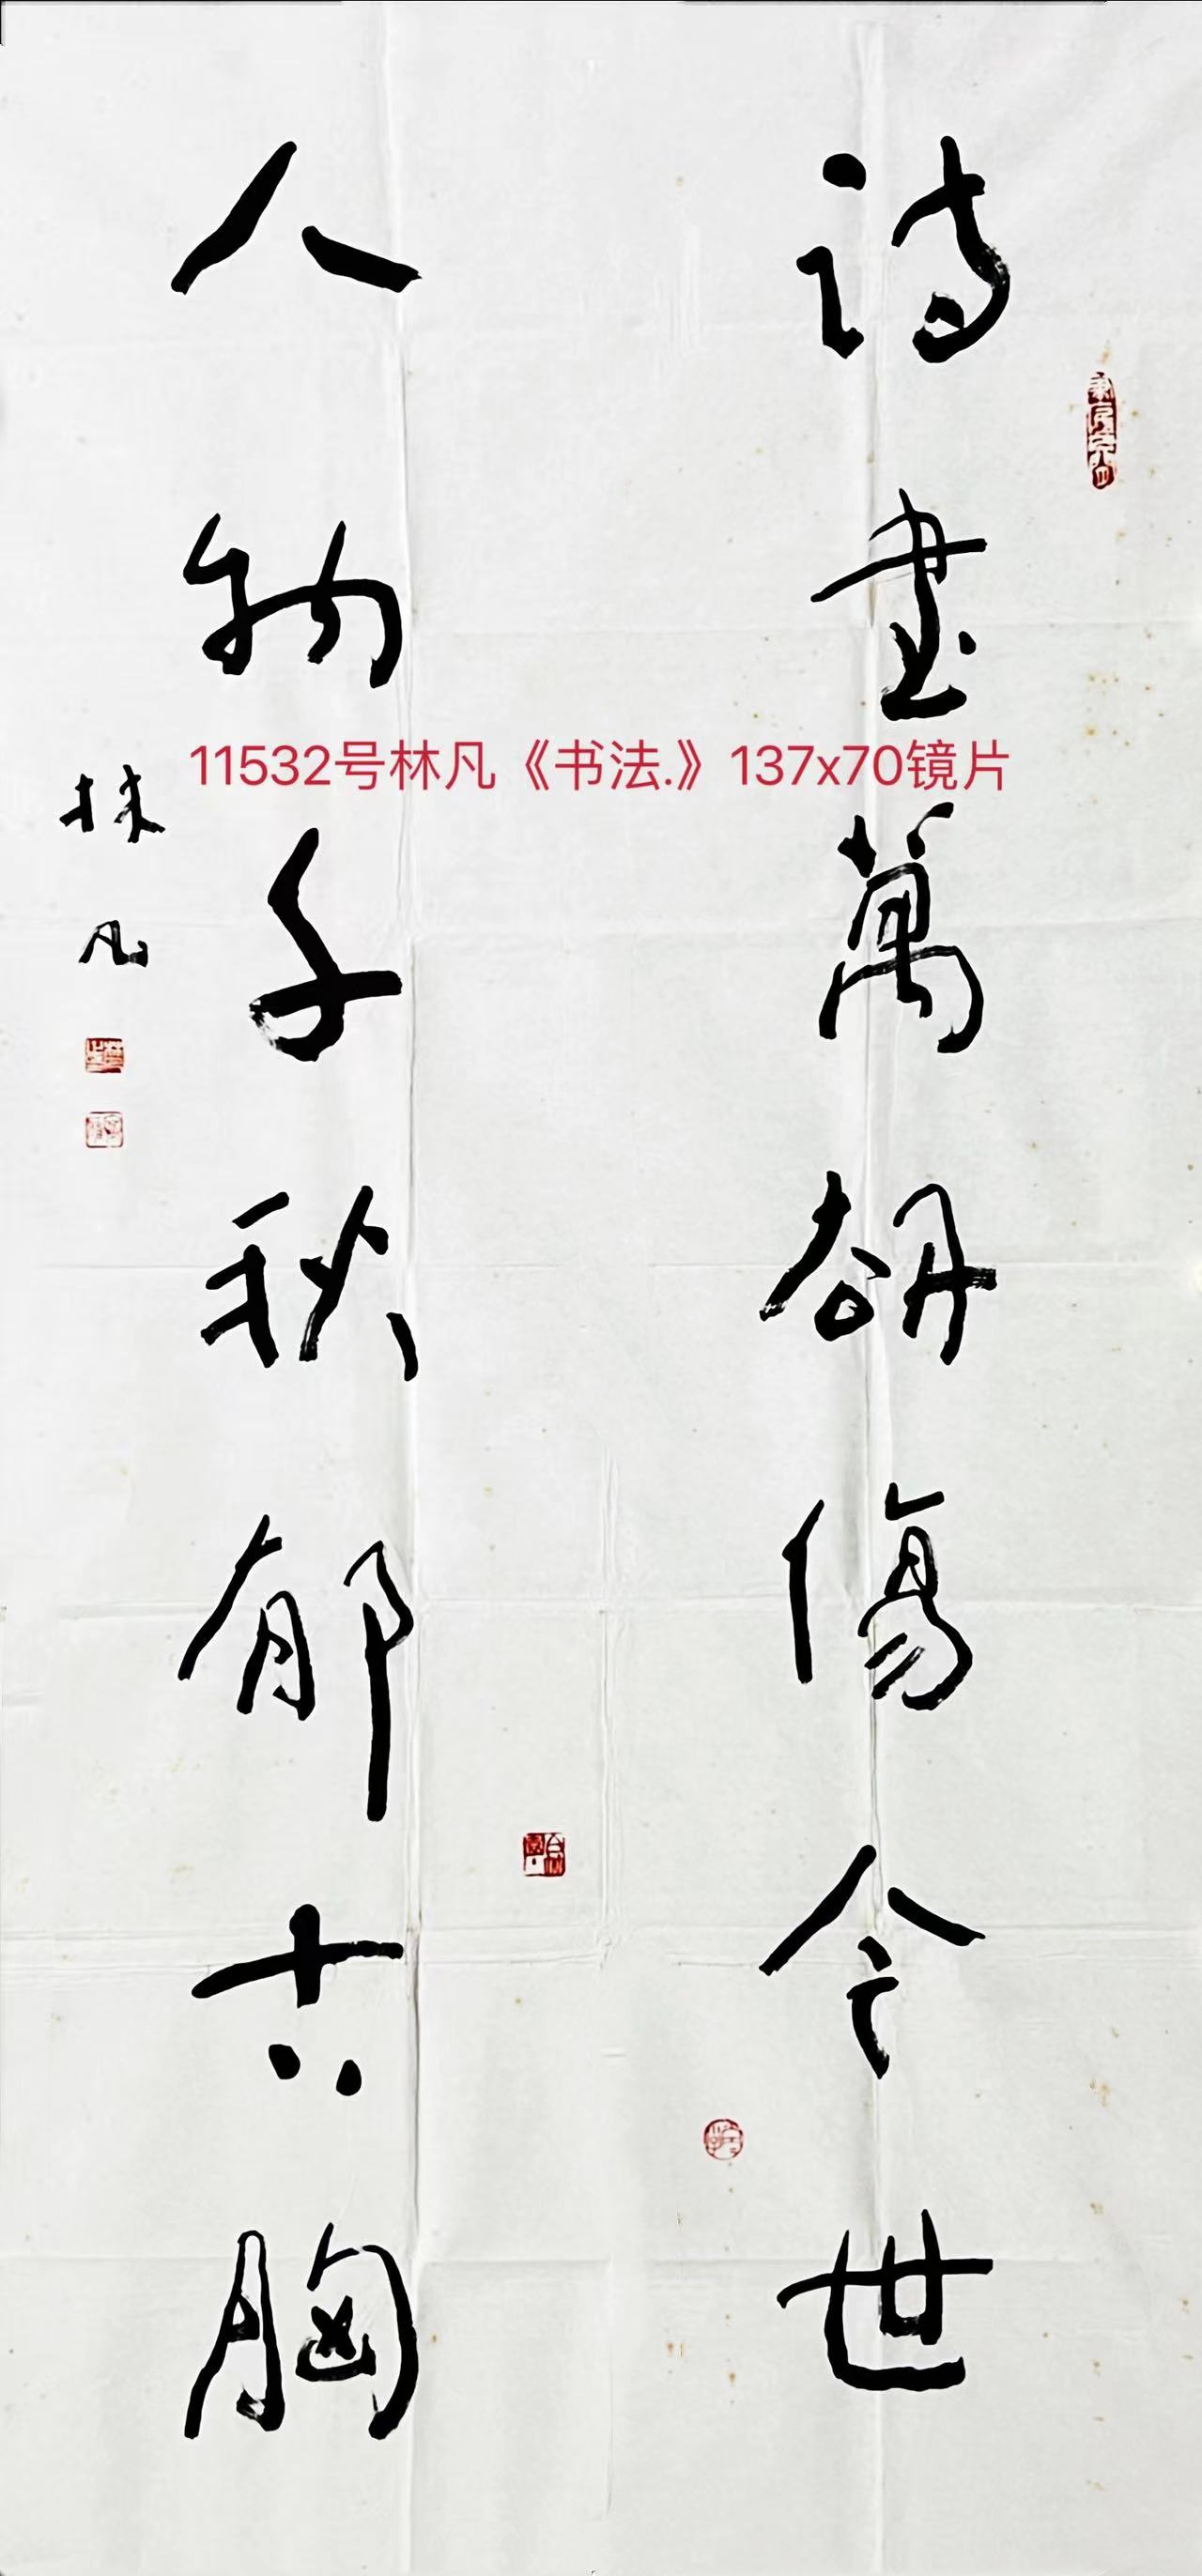 詩書萬傷今世
人物千秋郁古胸
林凡
11532号林凡《书法.》137x70镜片